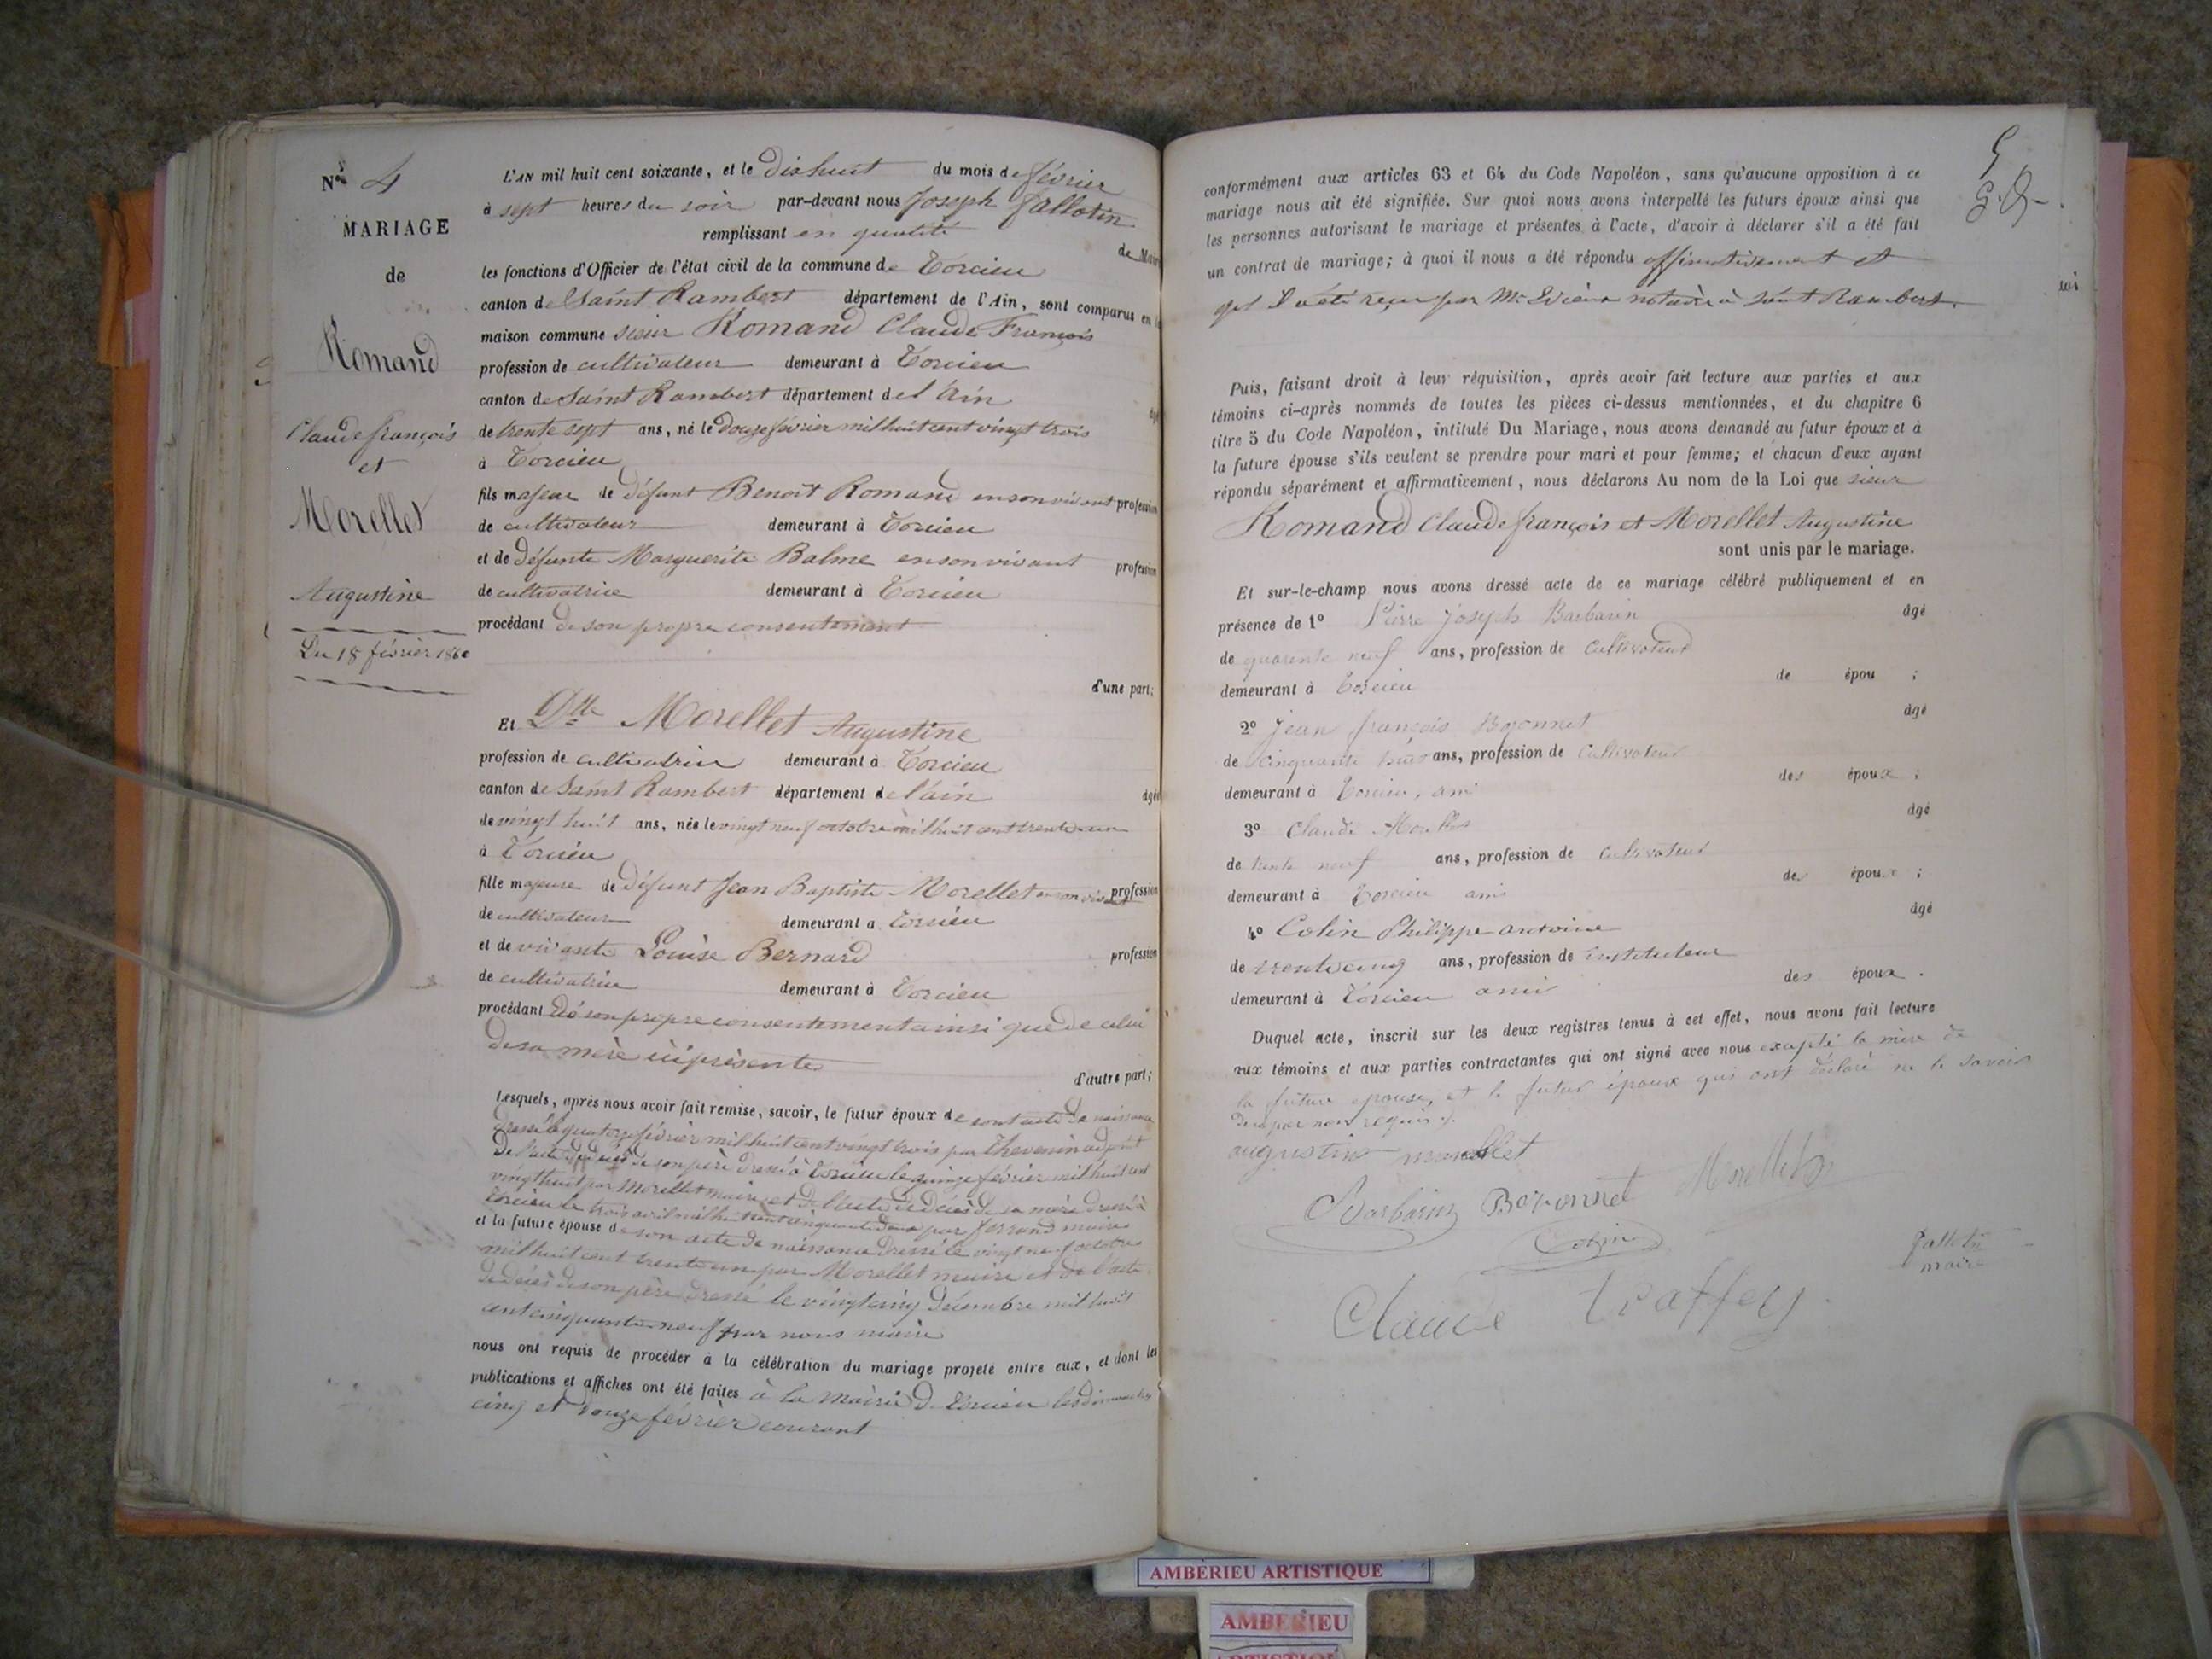 N° 4
MARIAGE
de
Romand
Claude françois
et
Morellet
Augustine
Du 18 février 1860
L'AN mil huit cent soixante, et le dix huit du mois de février
à sept heures du soir par-devant nous Joseph Fallotin
remplissant en qualité de Maire
les fonctions d'Officier de l'état civil de la commune de Torcieu
canton de Saint Rambert département de l'Ain, sont comparus en la
maison commune sieur Romand Claude François
profession de cultivateur demeurant à Torcieu
canton de Saint Rambert département de l'Ain âgé
de trente sept ans, né le douze février mil huit cent vingt trois
à Torcieu
fils majeur de défunt Benoit Romand en son vivant profession
de cultivateur demeurant à Torcieu
et de défunte Marguerite Balme en son vivant profession
de cultivatrice demeurant à Torcieu
procédant de son propre consentement
d'une part;
Et Dlle Morellet Augustine
profession de cultivatrice demeurant à Torcieu
canton de Saint Rambert département de l'ain âgée
de vingt huit ans, née le vingt neuf octobre mil huit cent trente un
à Torcieu
fille majeure de défunt Jean Baptiste Morellet en son vivant profession
de cultivateur demeurant a Torcieu
et de vivante Louise Bernard profession
de cultivatrice demeurant à Torcieu
procédant de son propre consentement ainsi que de celui
de sa mère ici présente
d'autre part;
Lesquels, après nous avoir fait remise, savoir, le futur époux de son acte de naissance
dressé le quatorze février mil huit cent vingt trois par Thevenin adjoint
De l'acte de décès de son père dressé à Torcieu le quinze février mil huit cent
vingt huit par Morellet maire et de l'acte de décès de sa mère dressé à
Torcieu le trois avril mil huit cent cinquante deux par Ferrand maire
et la future épouse de son acte de naissance dressé le vingt neuf octobre
mil huit cent trente un par Morellet maire et de l'acte
de décès de son père dressé le vingt cinq décembre mil huit
cent cinquante neuf par nous maire
nous ont requis de procéder à la célébration du mariage projeté entre eux, et dont les
publications et affiches ont été faites à la Mairie de Torcieu les dimanches
cinq et douze février courant
conformément aux articles 63 et 64 du Code Napoléon, sans qu'aucune opposition à ce
mariage nous ait été signifiée. Sur quoi nous avons interpellé les futurs époux ainsi que
les personnes autorisant le mariage et présentes à l'acte, d'avoir à déclarer s'il a été fait
un contrat de mariage; à quoi il nous a été répondu affirmativement et
qu'il a été reçu par Me notaire à Saint Rambert.
Puis, faisant droit à leur réquisition, après avoir fait lecture aux parties et aux
témoins ci-après nommés de toutes les pièces ci-dessus mentionnées, et du chapitre 6
titre 5 du Code Napoléon, intitulé Du Mariage, nous avons demandé au futur époux et à
la future épouse s'ils veulent se prendre pour mari et pour femme; et chacun d'eux ayant
répondu séparément et affirmativement, nous déclarons Au nom de la Loi que sieur
Romand Claude françois et Morellet Augustine
sont unis par le mariage.
Et sur-le-champ nous avons dressé acte de ce mariage célébré publiquement et en
présence de 1° Pierre Joseph Barbarin âgé
de quarante neuf ans, profession de cultivateur
demeurant à Torcieu de épou ;
2° Jean françois Bozonnet âgé
de cinquante huit ans, profession de cultivateur
demeurant à Torcieu, ami des époux ;
3° Claude âgé
de trente neuf ans, profession de cultivateur
demeurant à Torcieu ami des époux ;
4° Colin Philippe antoine âgé
de trente cinq ans, profession de instituteur
demeurant à Torcieu ami des époux.
Duquel acte, inscrit sur les deux registres tenus à cet effet, nous avons fait lecture
aux témoins et aux parties contractantes qui ont signé avec nous excepté la mère de
la future épouse, et le futur époux qui ont déclaré ne le savoir
de ce par nous requis.
augustine morellet
Barbarin Bozonnet Morellet
Colin
Fallotin
maire
Claude traffey
AMBÉRIEU ARTISTIQUE
AMBERIEU
ARTISTIQUE